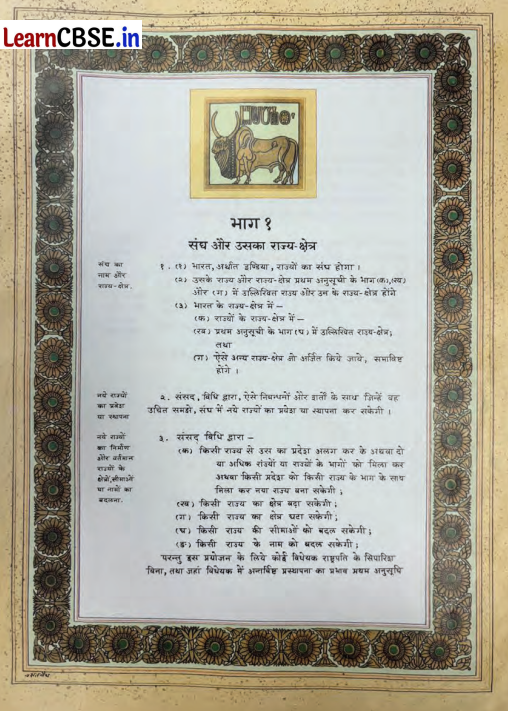 LearnCBSE.in
भाग १
संघ और उसका राज्य-क्षेत्र
संघ का
नाम और
राज्य-क्षेत्र.
१. (१) भारत, अर्थात इण्डिया, राज्यों का संघ होगा।
(२) उसके राज्य और राज्य-क्षेत्र प्रथम अनुसूची के भाग (क),(ख)
और (ग) में उल्लिखित राज्य और उन के राज्य-क्षेत्र होंगे
(३) भारत के राज्य-क्षेत्र में —
(क) राज्यों के राज्य-क्षेत्र में —
(ख) प्रथम अनुसूची के भाग (घ) में उल्लिखित राज्य-क्षेत्र;
तथा
(ग) ऐसे अन्य राज्य-क्षेत्र जो अर्जित किये जाये, समाविष्ट
होंगे।
नये राज्यों
का प्रवेश
या स्थापना
२. संसद, विधि द्वारा, ऐसे निबन्धनों और शर्तों के साथ जिन्हें वह
उचित समझे, संघ में नये राज्यों का प्रवेश या स्थापना कर सकेगी।
नये राज्यों
का निर्माण
और वर्तमान
राज्यों के
क्षेत्रों,सीमाओं
या नामों का
बदलना.
३. संसद विधि द्वारा —
(क) किसी राज्य से उस का प्रदेश अलग कर के अथवा दो
या अधिक राज्यों या राज्यों के भागों को मिला कर
अथवा किसी प्रदेश को किसी राज्य के भाग के साथ
मिला कर नया राज्य बना सकेगी;
(ख) किसी राज्य का क्षेत्र बढ़ा सकेगी;
(ग) किसी राज्य का क्षेत्र घटा सकेगी;
(घ) किसी राज्य की सीमाओं को बदल सकेगी;
(ङ) किसी राज्य के नाम को बदल सकेगी;
परन्तु इस प्रयोजन के लिये कोई विधेयक राष्ट्रपति के सिपारिश
बिना, तथा जहां विधेयक में अन्तर्विष्ट प्रस्थापना का प्रभाव प्रथम अनुसूचि